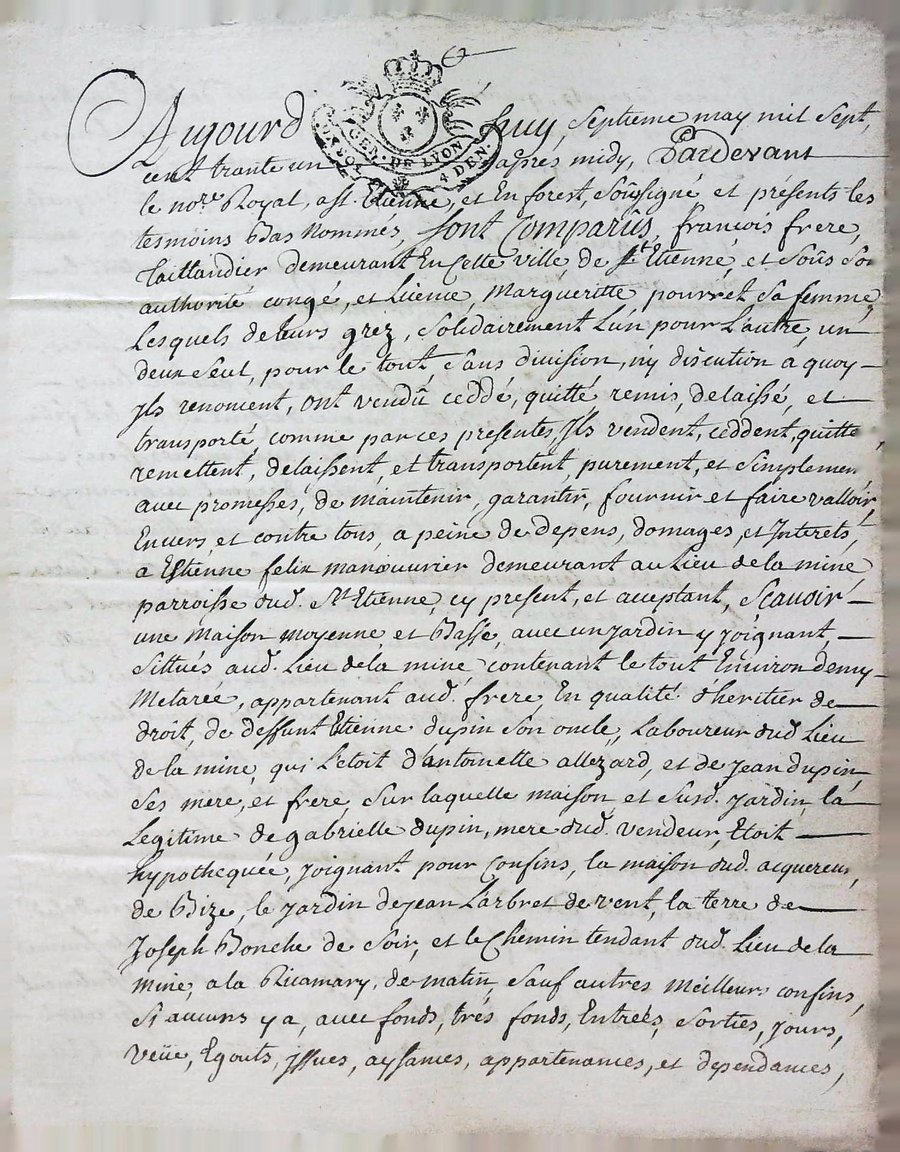 Aujourd'huy, Septieme may mil sept
GEN. DE LYON
4 DEN.
cent trante un apres midy, Pardevant
le nore. Royal, a st. Etienne, et En forest, Soûssigné et présents les
tesmoins Bas Nommés, sont Comparûs, françois frere,
Taillandier demeurant En Cette ville, de st. Etienne, et Soûs Son
authorité congé, et Licence, Margueritte pourret Sa femme,
Lesquels de leurs grez, solidairement L'un pour L'autre, un
deux Seul, pour le tout Sans division, ny discution a quoy
Jls renoncent, ont vendû ceddé, quitté remis, delaissé, et
transporté, comme par ces presentes, Jls vendent, ceddent, quitte
remettent, delaissent, et transportent purement, et Simplemen
avec promesses, de maintenir, garantir, fournir et faire valloir,
Envers, et contre tous, a peine de depens, domages, et Interets,
a Estienne felix manouvrier demeurant au Lieu de la mine
parroisse dud. St Etienne, cy present, et acceptant, Sçavoir
une Maison moyenne, et Basse, avec un Jardin y Joignant,
Sittués aud. Lieu de la mine contenant le tout Environ demy
Metarée, appartenant aud. frere, En qualité d'heritier de
droit, de deffunt Etienne dupin Son oncle, Laboureur dud Lieu
de la mine, qui L'etoit d'antoinette allezard, et de Jean dupin,
Ses mere, et frere, Sur laquelle maison, et Susd. Jardin, la
Legitime de gabrielle dupin, mere dud. vendeur, Etoit
hypothequée, Joignant pour Confins, la maison dud. acquereur,
de Bize, le Jardin de Jean Larbret de vent, la terre de
Joseph Bonche de Soir, et le Chemin tendant dud. Lieu de la
mine, a la Ricamary, de matin, Sauf autres Meilleurs confins,
Si aucuns y a, avec fonds, trés fonds, Entrées, Sorties, Jours,
Veüe, Egouts, jssues, ayssances, appartenances, et dependances,